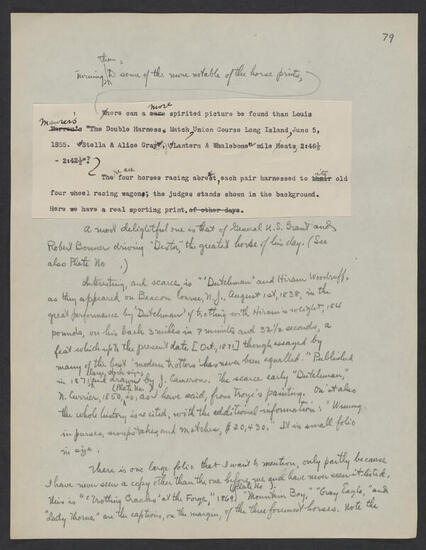 79
then,
Turning, to some of the more notable of the horse prints,
more
Where can a more spirited picture be found than Louis
Maurer's
"The Double Harness, Match, Union Course Long Island, June 5,
1855. Stella & Alice Gray, Lantern & Whalebone mile Heats, 2:46½
- 2:42½"?
The four horses racing abreast, each pair harnessed to its old
four wheel racing wagon, the judges stands shown in the background.
Here we have a real sporting print, of other days.
A most delightful one is that of General U.S. Grant and
Robert Bonner driving "Dexter," the greatest horse of his day. (See
also Plate No .)
Interesting, and scarce, is "Dutchman" and Hiram Woodruff,
as they appeared on Beacon Course, N.J., August 1st, 1838, in the
great performance by "Dutchman" of trotting with Hiram's weight, 164
pounds, on his back 3 miles in 7 minutes and 32½ seconds, a
feat which up to the present date [Oct, 1871] though essayed by
many of the best modern trotters has never been equalled." Published
in 1871 and drawn by J. Cameron. The scarce early "Dutchman,"
(Plate No )
N. Currier, 1850, is, as I have said, from Troye's painting. On it also
the whole history is recited, with the additional information: "Winning
in purses, sweepstakes and matches, $20,430." It is small folio
in size.
There is one large folio that I want to mention, only partly because
I have never seen a copy other than the one before me and have never seen it listed.
(Plate No. )
This is "Trotting Cracks" at the Forge," 1869. "Mountain Boy," "Gray Eagle," and
"Lady Thorne" are the captions, on the margin, of the three foremost horses. Note the